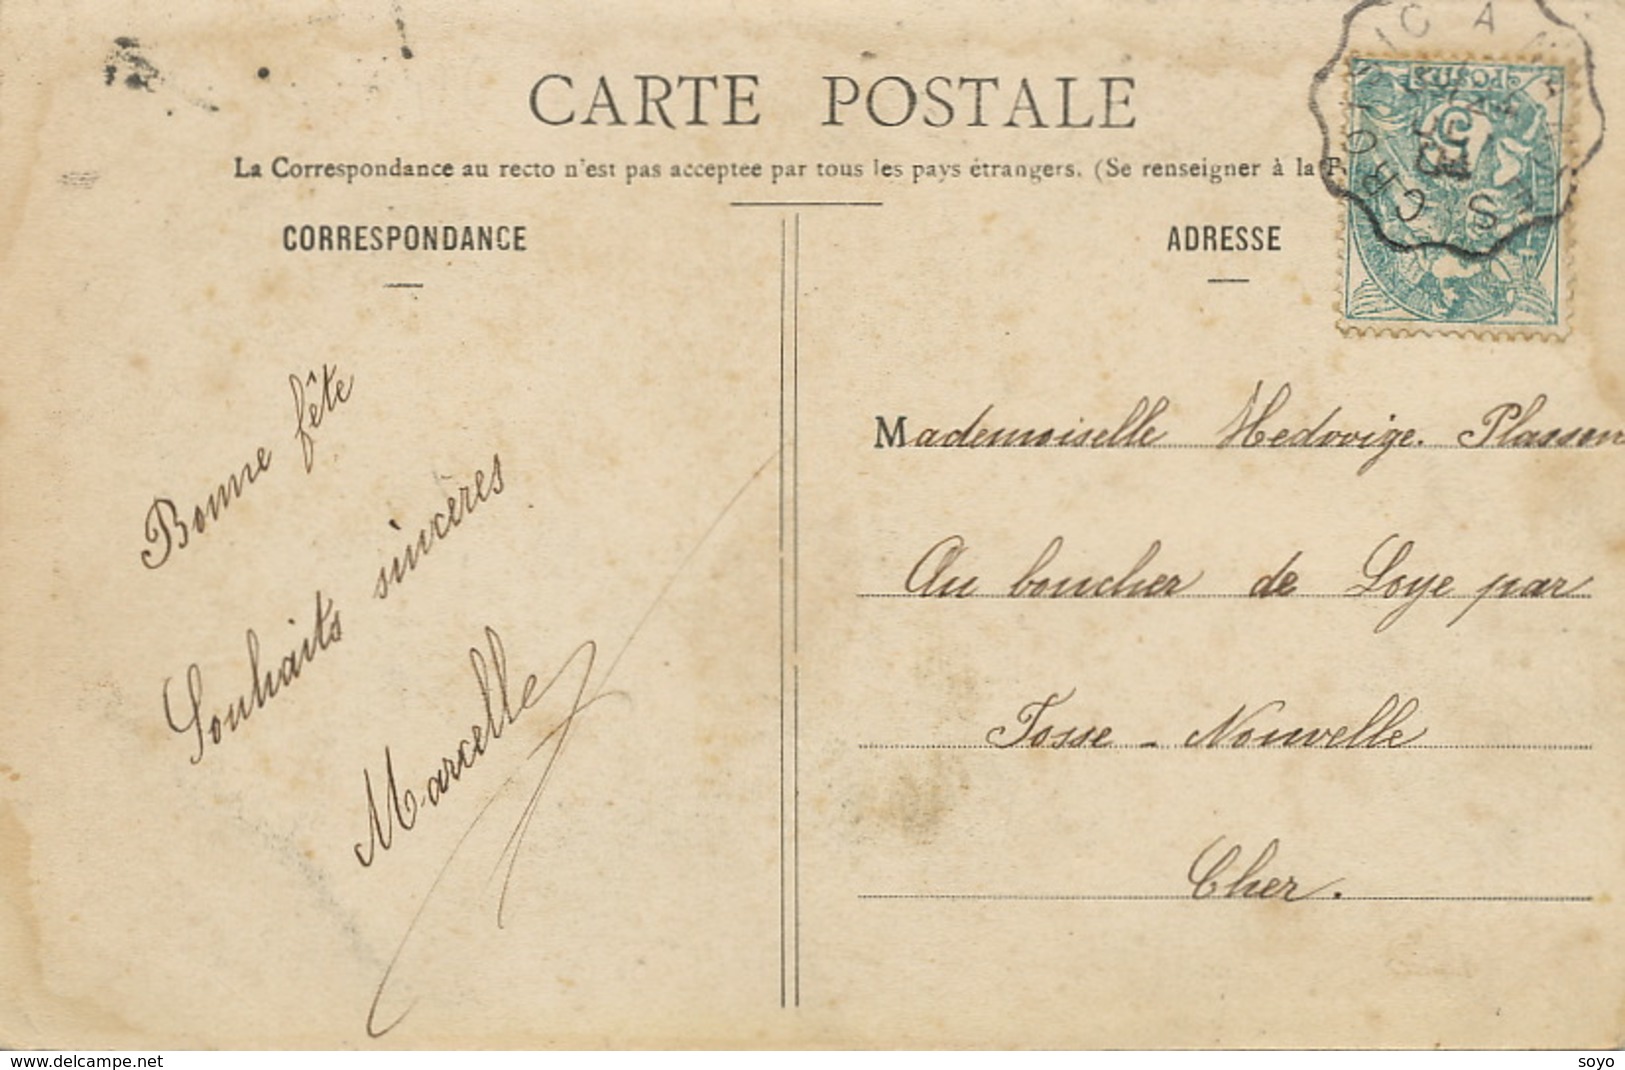 CARTE POSTALE
La Correspondance au recto n'est pas acceptee par tous les pays étrangers. (Se renseigner à la P
CORRESPONDANCE
Bonne fête
Souhaits sincères
Marcelle
ADRESSE
Mademoiselle Hedwige. Plasson
Au boucher de Loye par
Fosse - Nouvelle
Cher.
POSTES
5
www.delcampe.net
soyo